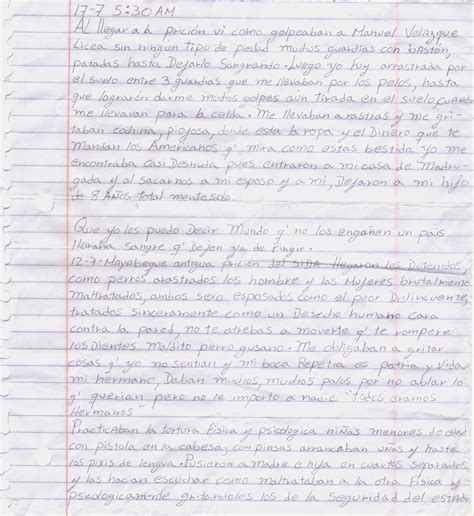 17-7 5:30 AM
AL llegar a la prición vi como golpeaban a Manuel Velazque
Licea sin ningun tipo de piedad muchos guardias con bastón,
patadas hasta Dejarlo Sangrando. Luego yo fuy arrastrada por
el suelo entre 3 guardias que me llevaban por los pelos, hasta
que lograrón darme muchos golpes aún tirada en el suelo, cuando
me llevavan para la celda. Me llevaban a rastras y me gri-
taban cochina, piojosa, donde esta la ropa y el Dinero que te
Mandan los Americanos q' mira como estas bestida. Yo me
encontraba Casi Desnuda pues entraron a mi casa de Madru-
gada y al sacarnos a mi esposo y a mi, Dejaron a mi hijo
de 8 Años total mente solo
Que yo les puedo Decir Mundo q' no los engañen un país
llorando Sangre q' Dejen ya de Fingir.
12-7- Mayabeque antigua prición del SIDA llegaron los Detenidos
como perros arastrados los hombre y las Mujeres brutalmente
Maltratados, ambos sexo esposados como el peor Delincuente,
tratados sinceramente como un Desecho humano cara
contra la pared, no te atrebas a moverte q' te rompere
los Dientes Maldito perro gusano. Me obligaban a gritar
cosas q' yo no sentian y mi boca Repetia es patria y vida
mi hermano, Daban muchos, muchos palos por no ablar lo
q' querian pero no le importo a nadie "todos eramos
Hermanos"
Practicaban la tortura Fisica y psicologica niñas menores de edad
con pistola en la cabesa, con pinsas arrancaban uñas y hasta
los pixis de lengua. Pusieron a Madre e hija en cuartos separados
y las hacian escuchar como maltrataban a la otra Fisica y
psicologicamente gritandoles los de la Seguridad del estado